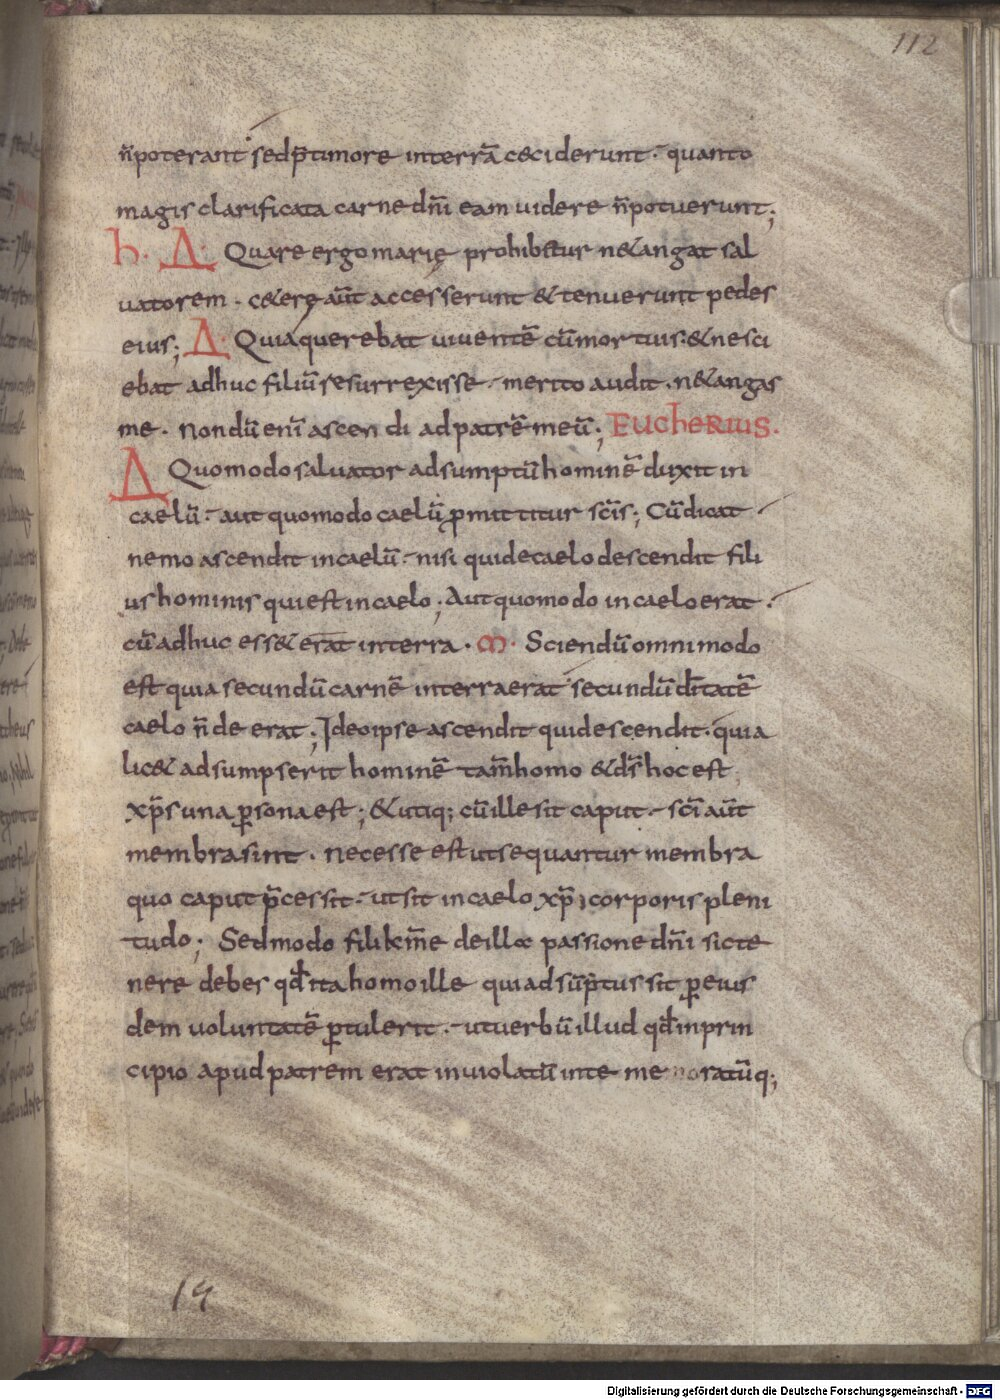 112
n̄poterant sedp̄timore interrā ceciderunt · quanto
magis clarificata carne dn̄i eam videre n̄potuerunt;
h. Δ· Quare ergo marię prohibetur n&angat sal
uatorem · c&erę aūt accesserunt & tenuerunt pedes
eius; Δ· Quia querebat uiuentē cū mortuis · & nesci
ebat adhuc filiū resurrexisse · merito audit · n&angas
me · nondū enī ascendi ad patrē meū; EUCHERIUS.
Δ Quomodo saluator adsumptū hominē duxit in
caelū · aut quomodo caelū p̄mittitur sc̄is; Cū dicat
nemo ascendit in caelū · nisi qui de caelo descendit fili
us hominis qui est in caelo; Aut quomodo in caelo erat ·
cū adhuc ess& erat in terra · m· Sciendū omnimodo
est quia secundū carnē in terra erat secundū dīтatē
caelo n̄ de erat; Ideo ipse ascendit qui descendit · quia
lic& adsumpserit hominē tam̄ homo & ds̄ hoc est
xp̄s una p̱sona est; & utiq; cū ille sit caput · sc̄i aūt
membra sint · necesse est ut sequantur membra
quo caput p̄cessit · ut sit in caelo xp̄i corporis pleni
tudo; Sed modo fili km̄e de illa passione dn̄i sic te
nere debes qđ ita homo ille qui adsūptus sit p̱ eius
dem uoluntatē p̱tulerit · ut uerbū illud qđ in prin
cipio apud patrem erat inuiolatū inte me ratūq;
Digitalisierung gefördert durch die Deutsche Forschungsgemeinschaft - DFG